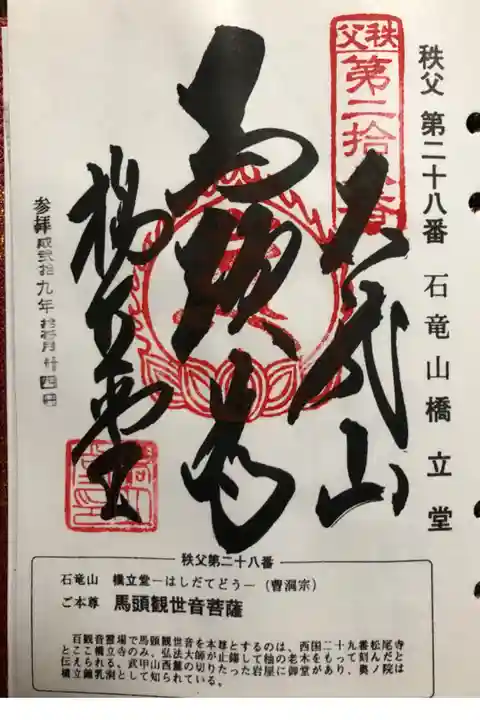 秩父 第二十八番 石竜山橋立堂
秩父
第二拾
山
馬頭
橋立堂
参拝 平成弐拾九年
廿四日
秩父第二十八番
石竜山 橋立堂―はしだてどう―(曹洞宗)
ご本尊 馬頭観世音菩薩
百観音霊場で馬頭観世音を本尊とするのは、西国二十九番松尾寺
とここ橋立寺のみ、弘法大師が止錫して柚の老木をもって刻んだと
伝えられる。武甲山西麓の切りたった岩屋に御堂があり、奥ノ院は
橋立鍾乳洞として知られている。